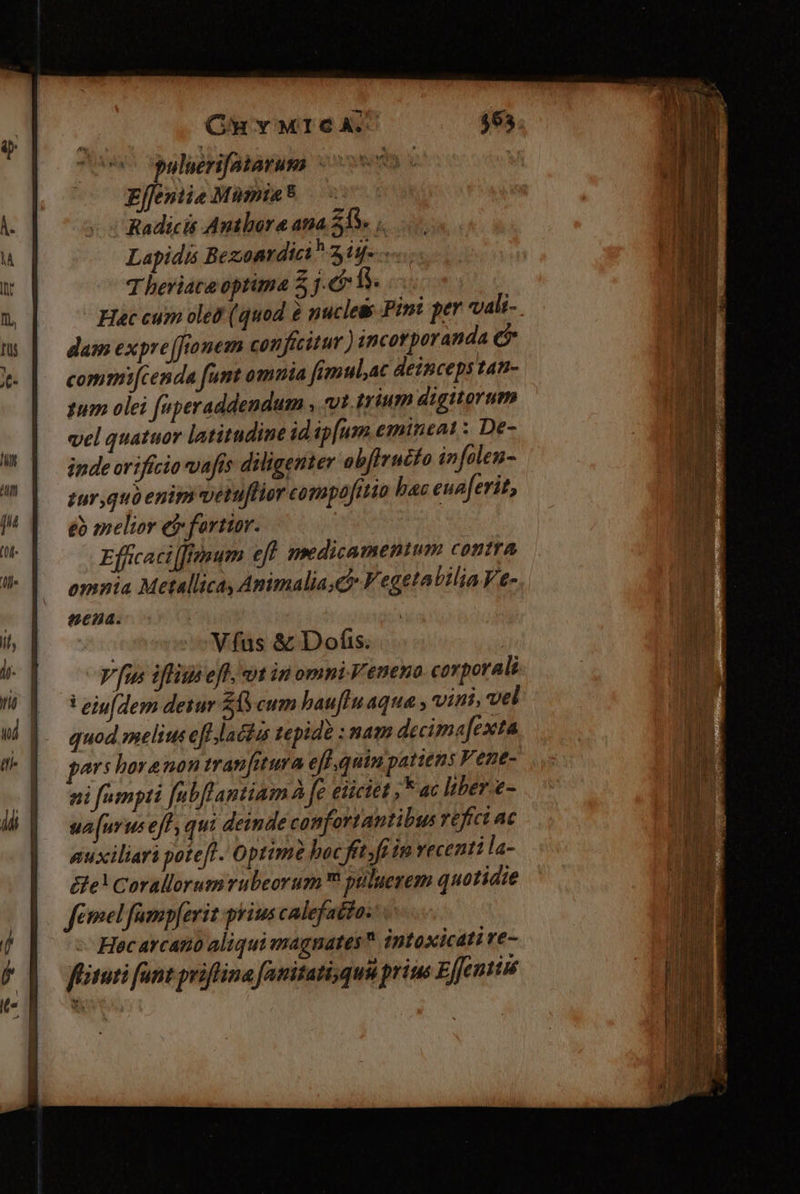 CHYMICA. 363.
pulueriſatarum
Eſſentiæ Mumiæ g
Radicis Anthoræ ana ʒß.
Lapidis Bezoardici h ʒ ij.
Theriacæ optimæ ʒ j. & ß.
Hæc cum oleo (quod è nucleis Pini per vali-
dam expreſſionem conficitur) incorporanda &
commiſcenda ſunt omnia ſimul, ac deinceps tan-
tum olei ſuperaddendum, vt trium digitorum
vel quatuor latitudine id ipſum emineat: De-
inde orificio vaſis diligenter obſtructo inſolen-
tur, quò enim vetuſtior compoſitio hæc euaſerit,
eò melior & fortior.
Efficaciſſimum eſt medicamentum contra
omnia Metallica, Animalia, & Vegetabilia Ve-
nena.
Vſus & Doſis.
Vſus iſtius eſt, vt in omni Veneno corporali
i eiuſdem detur ʒß cum hauſtu aquæ, vini, vel
quod melius eſt, lactis tepidè: nam decimaſexta
pars horæ non tranſitura eſt, quin patiens Vene-
ni ſumpti ſubſtantiam à ſe eiiciet, k ac liber e-
uaſurus eſt, qui deinde confortantibus refici ac
auxiliari poteſt. Optimè hoc fit, ſi in recenti la-
cte l Corallorum rubeorum m puluerem quotidie
ſemel ſumpſerit prius calefacto.
Hoc arcano aliqui magnates n intoxicati re-
ſtituti ſunt priſtinæ ſanitati, quũ prius Eſſentiis